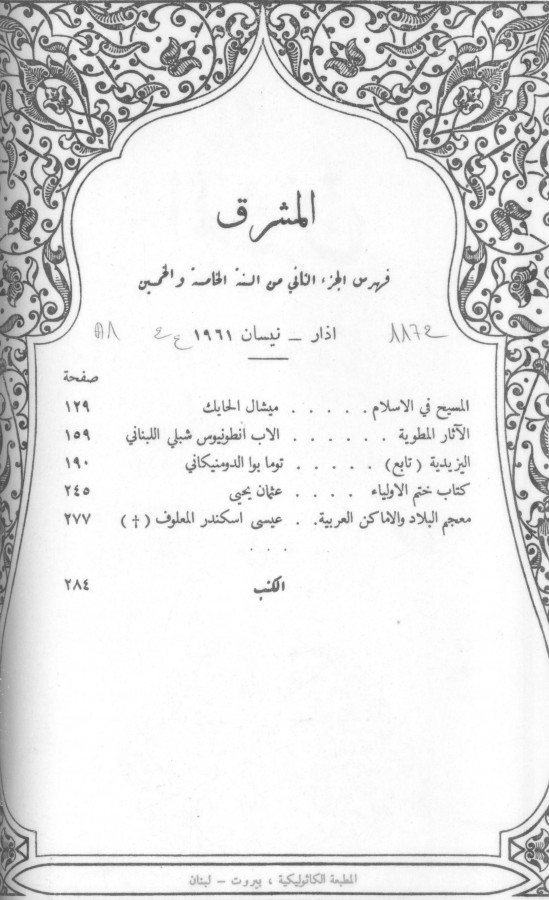 المشرق
فهرس الجزء الثاني من السنة الخامسة والخمسين
اذار – نيسان ١٩٦١
صفحة
المسيح في الاسلام . . . . . ميشال الحايك ١٢٩
الآثار المطوية . . . . . . الاب أنطونيوس شبلي اللبناني ١٥٩
اليزيدية (تابع) . . . . . توما بوا الدومنيكاني ١٩٠
كتاب ختم الاولياء . . . . عثمان يحيى ٢٤٥
معجم البلاد والاماكن العربية. . عيسى اسكندر المعلوف (†) ٢٧٧
. . .
الكتب ٢٨٤
المطبعة الكاثوليكية ، بيروت – لبنان